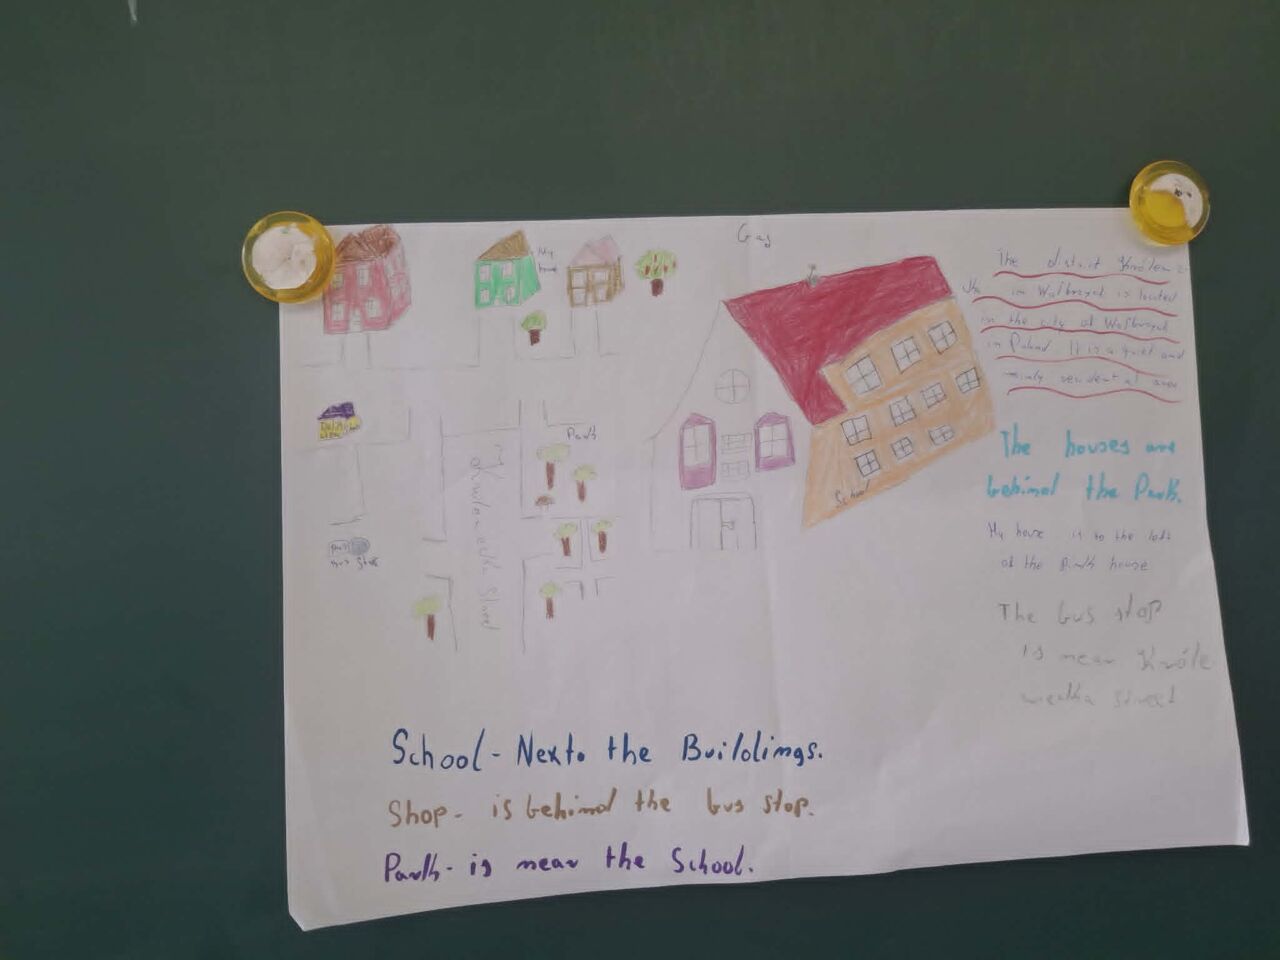 My
house
Park
bus stop
School
The district Królew
in Wałbrzych is located
in the city of Wałbrzych
in Poland. It is a quiet and
mainly residential area
The houses are
behind the Park.
My house is to the left
of the Pink house
The bus stop
is near Króle
wiecka street
Street
School - Nexto the Buildings.
Shop - is behind the bus stop.
Park - is near the School.